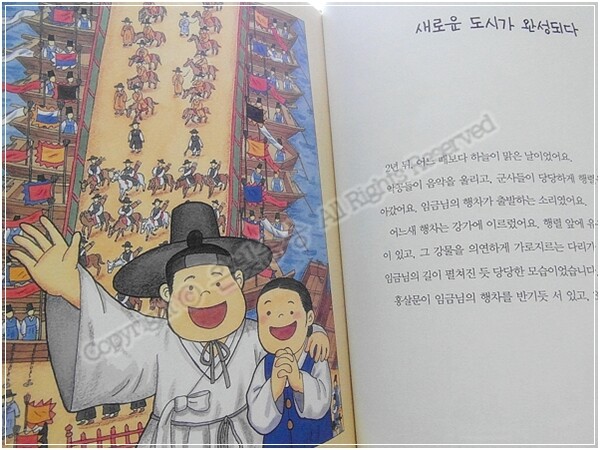 새로운 도시가 완성되다
2년 뒤, 어느 때보다 하늘이 맑은 날이었어요.
악공들이 음악을 울리고, 군사들이 당당하게 행렬
아갔어요. 임금님의 행차가 출발하는 소리였어요.
어느새 행차는 강가에 이르렀어요. 행렬 앞에 유
이 있고, 그 강물을 의연하게 가로지르는 다리가
임금님의 길이 펼쳐진 듯 당당한 모습이었습니다
홍살문이 임금님의 행차를 반기듯 서 있고,
Copyright © All Rights Reserved